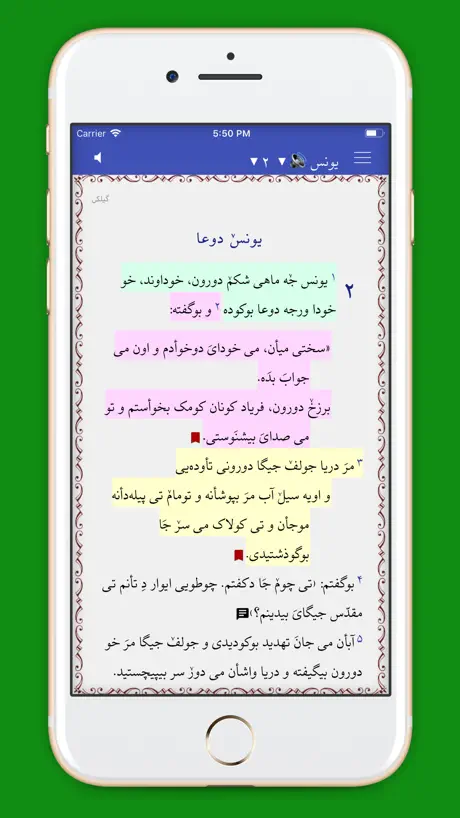 Carrier 5:50 PM
یونس ▼ ۲ ▼
گیلکی
یونسˇ دوعا
۲
۱ یونس جه ماهی شکمˇ دورون، خوداوند، خو
خودا ورجه دوعا بوکوده ۲ و بوگفته:
«سختی میأن، می خودایَ دوخوأدم و اون می
جوابَ بدَه.
برزخˇ دورون، فریاد کونان کومک بخوأستم و تو
می صدایَ بیشنَوستی.
۳ مرَ دریا جولفˇ جیگا دورونی تأوده‌یی
و اویه سیلˇ آب مرَ بپوشأنه و تومامˇ تی پیله‌دأنه
موجأن و تی کولاک می سرˇ جَا
بوگوذشتیدی.
۴ بوگفتم: ‹تی چومˇ جَا دکفتم. چوطویی ایوار دِ تأنم تی
مقدّس جیگایَ بیدینم؟›
۵ آبأن می جانَ تهدید بوکودیدی و جولفˇ جیگا مرَ خو
دورون بیگیفته و دریا واشأن می دورˇ سر بیپیچستید.